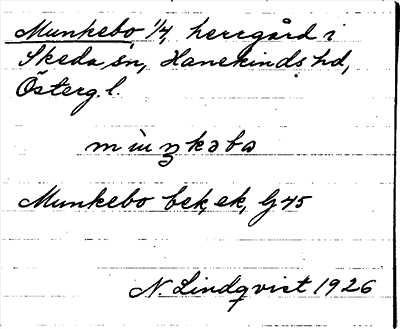 Munkebo 1/4, herrgård i
Skeda sn, Hanekinds hd,
Österg. l.
mùŋkəbo
Munkebo bek, ek, G 45
N. Lindqvist 1926